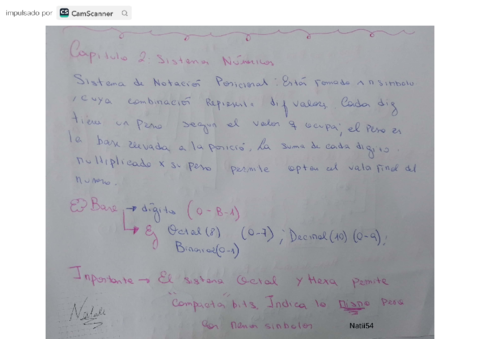 impulsado por CS CamScanner
Capitulo 2 Sistema Númericos
Sistema de Notación Posicional: Están formado x n simbolo
, cuya combinación Represent. dif valores Cada dig
tiene un Peso segun el valor q ocupa; el Peso es
la base elevada a la posició, la suma de cada digito
multiplicado x su peso permite optener el valo final del
numero.
Base → digito (0-B-1)
→ Ej Octal(8) (0-7) ; Decimal(10) (0-9);
Binario(0-1)
Importante → El sistema Octal y Hexa permite
"Compacta" bits, Indica lo Mismo Pero
Con menos simbolos
Natali
Natii54